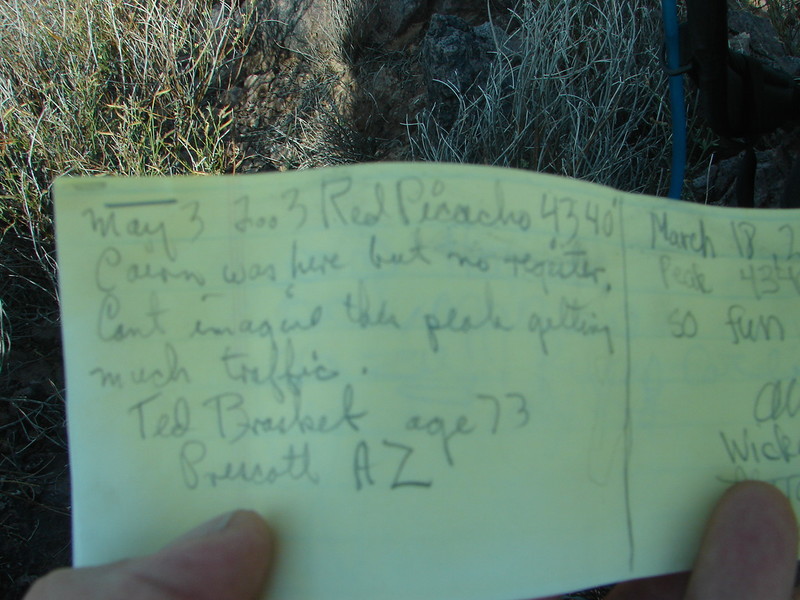 May 3 2003 Red Picacho 4340'
Cairn was here but no register.
Cant imagine this peak getting
much traffic.
Ted Brasket age 73
Prescott AZ
March 18,
Peak 434
so fun
Wick